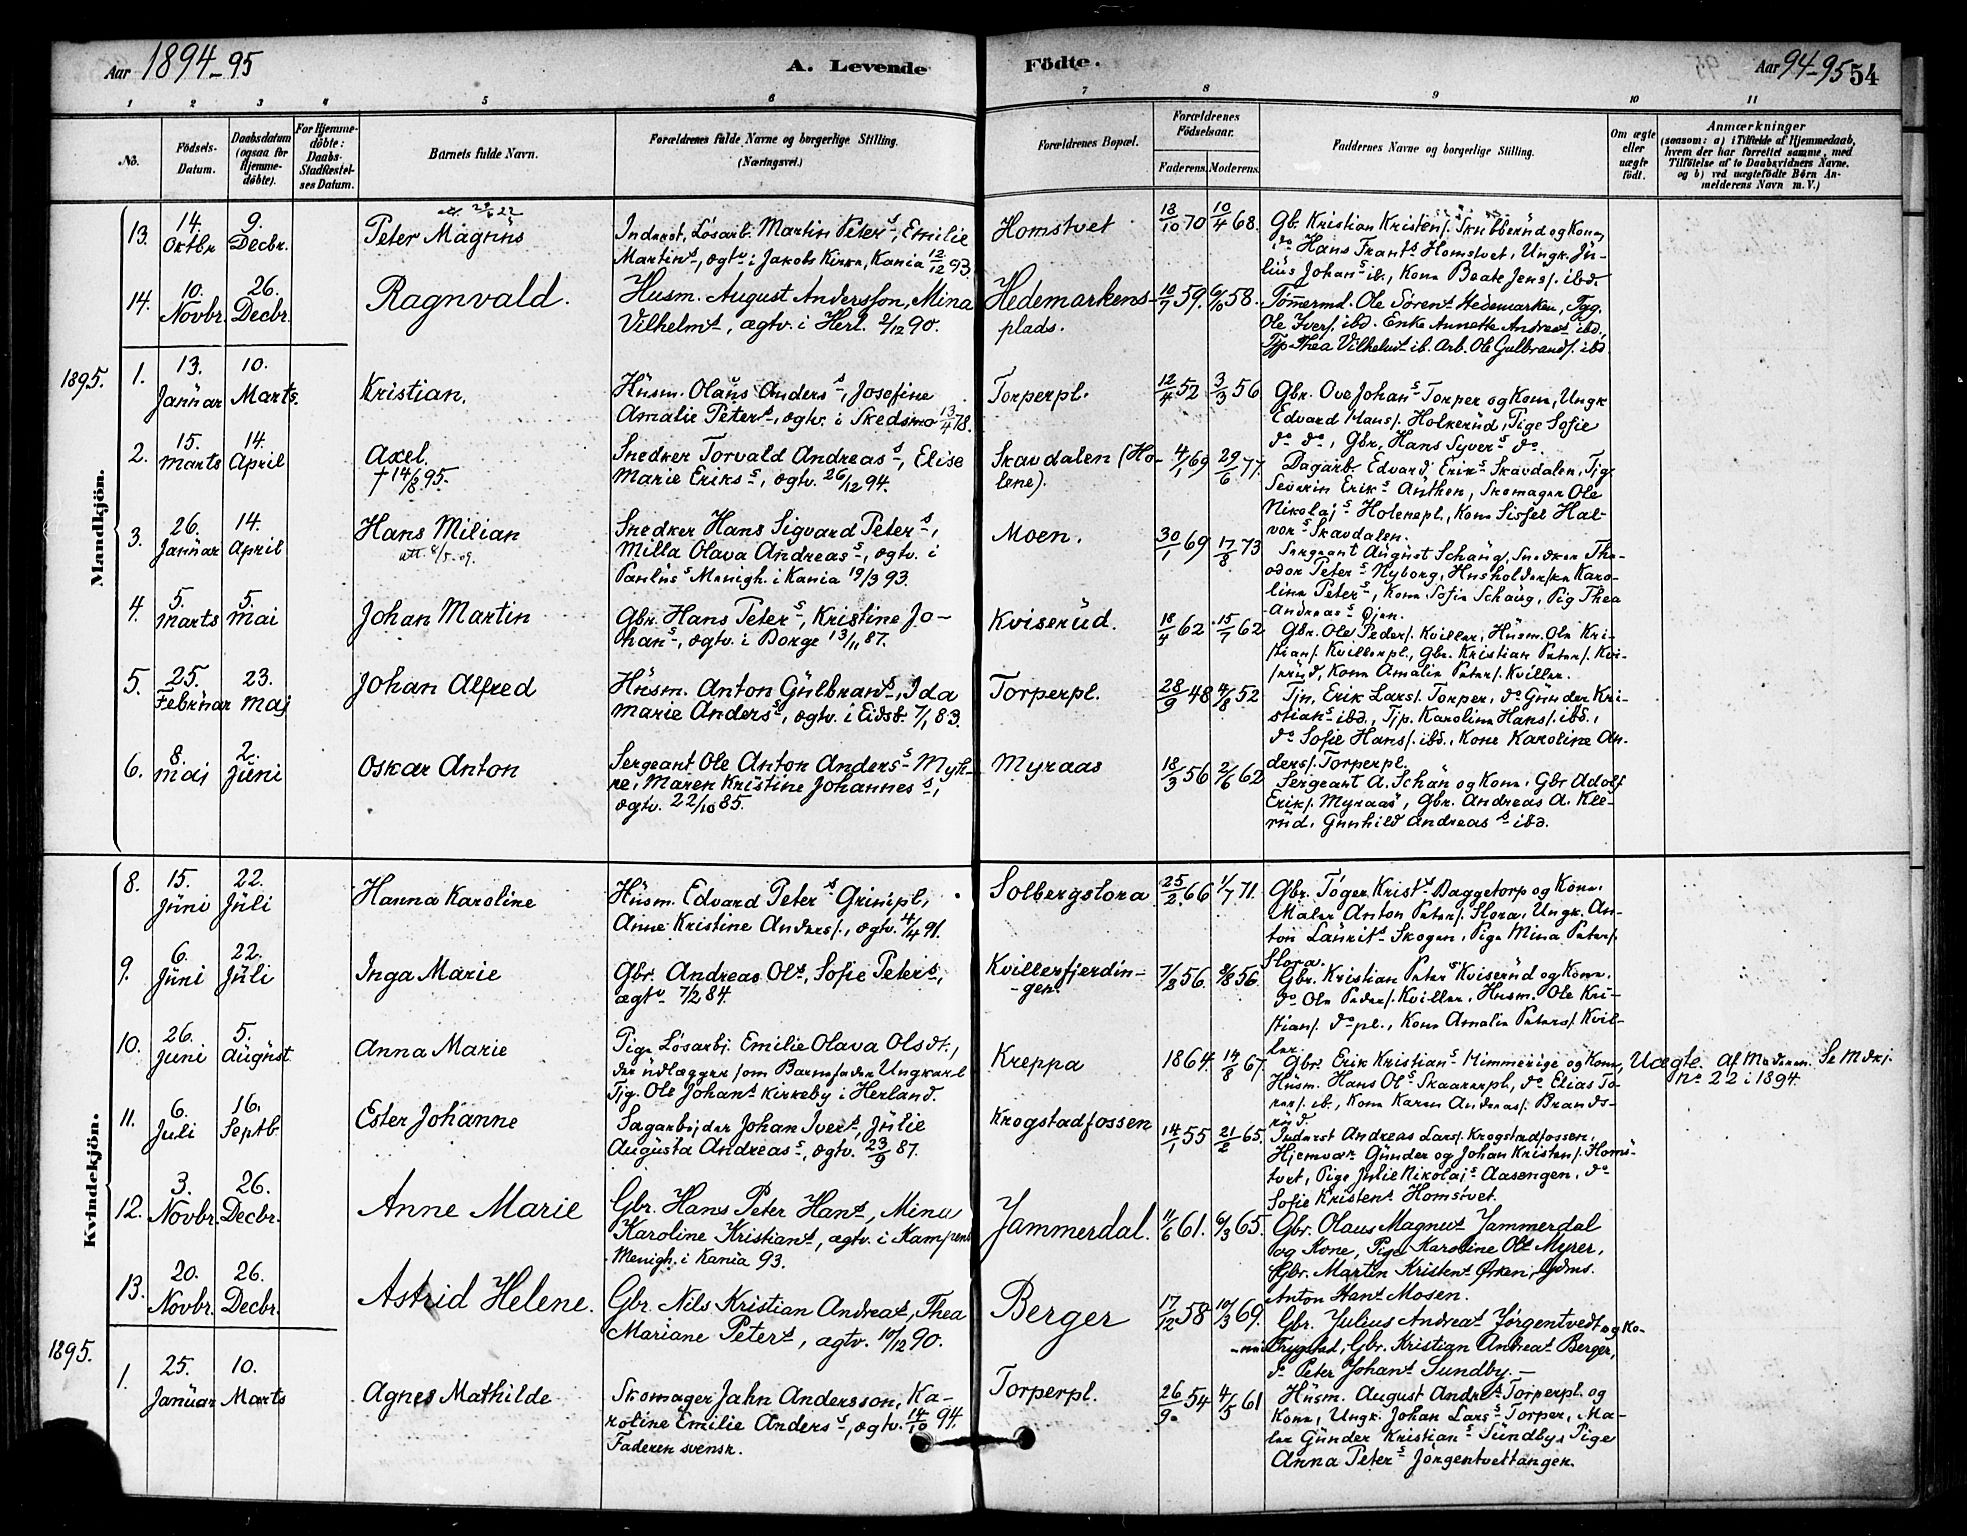 Aar 1894-95
A. Levende
Födte.
Aar 94-95 54
1 2 3 4 5 6 7 8 9 10 11
No.
Födsels-
Datum.
Daabsdatum
(ogsaa for
Hjemme-
döbte).
For Hjemme-
döbte:
Daabs-
Stadfæstel-
ses Datum.
Barnets fulde Navn.
Forældrenes fulde Navne og borgerlige Stilling.
(Næringsvei.)
Forældrenes Bopæl.
Forældrenes
Födselsaar.
Faderens. Moderens.
Faddernes Navne og borgerlige Stilling.
Om ægte
eller
uægte
födt.
Anmærkninger
(saasom: a) i Tilfælde af Hjemmedaab,
hvem der har forrettet samme, med
Tilföielse af to Daabsvidners Navne,
og b) ved uægtefödte Börn An-
melderens Navn m. V.)
Mandkjön.
13. 14. Oktbr 9. Decbr.
Peter Magnus
Inderst, Løsarb. Martin Peters, Emilie
Martint, ægtv. i Jakobs Kirke, Kania 12/12 93.
Homstvet
18/10 70 10/4 68.
Gb. Kristian Kristens. Skribberud og Kone,
do Hans Frants Homstvet, Ungk. Ju-
lius Johans ib., Kone Beate Jens. ibd.
14. 10. Novbr. 26. Decbr.
Ragnvald.
Husm. August Andersson, Mina
Vilhelmt, ægtv. i Herl. 2/12 90.
Hedemarkens-
plads.
10/7 59. 6/10 58.
Tømmermd. Ole Sørent Hedemarken, Tyg.
Ole Ivers. ibd. Enke Annette Andreat ibd.,
Tjp Thea Vilhelmt ib. Arb. Ole Gulbrands. ibd.
1895.
1. 13. Januar 10. Marts.
Kristian.
Husm. Olaus Anders, Josefine
Amalie Petert, ægtv. i Skedsmo 13/4 78.
Torperpl.
12/4 52 3/3 56
Gbr. Ove Johans Torper og Kone, Ungk
Edvard Hans. Holkerud, Pige Sofie
do do, Gbr. Hans Syvers do.
2. 15. Marts 14. April
Axel,
† 14/8 95.
Snedker Torvald Andreas, Elise
Marie Eriks, ægtv. 26/12 94.
Skavdalen (Ho-
lene).
4/1 69 29/6 77.
Dagarb. Edvard Eriks Skavdalen, Tjg.
Severin Eriks Authen, Skomager Ole
Nikolajs Holenepl., Kone Sissel Hal-
vors Skavdalen.
3. 26. Januar 14. April
Hans Milian
att. 8/5-09.
Snedker Hans Sigvard Peters,
Milla Olava Andreas, ægtv. i
Paulus Menigh. i Kania 19/3 93.
Moen.
30/1 69 17/8 73
Sergeant August Schaug, Snedker The-
odor Peters Nyborg, Husholderske Karo-
line Peters, Kone Sofie Schaug, Pig Thea
Andreas Gjen.
4. 5. Marts 5. Mai
Johan Martin
Gbr. Hans Peters, Kristine Jo-
hans, ægtv. i Borge 13/11 87.
Kviserud.
18/4 62 15/7 62
Gbr. Ole Peders. Kviller, Husm. Ole Kri-
stians. Kvillerpl., Gbr. Kristian Peters. Kvi-
serud, Kone Amalie Peters. Kviller.
5. 25. Februar 23. Maj
Johan Alfred
Husm. Anton Gulbrants, Ida
Marie Anders, ægtv. i Eidsb. 7/1 83.
Torperpl.
28/9 48 4/8 52
Tjn. Erik Lars. Torper, do Gunder Kri-
stians ibd., Tjp. Karoline Hans. ibd.,
do Sofie Hans. ibd., Kone Karoline An-
ders. Torperpl.
6. 8. Maj 2. Juni
Oskar Anton
Sergeant Ole Anton Anders Myh-
re, Maren Kristine Johannes,
ægtv. 22/10 85.
Myraas
18/3 56 2/6 62
Sergeant A. Schau og Kone, Gbr Adolf
Eriks. Myraas, Gbr. Andreas A. Kle-
rud, Gunhild Andreas ibd.
Kvindekjön.
8. 15. Juni 22. Juli
Hanna Karoline
Husm. Edvard Peters Grimipl,
Anne Kristine Anders., ægtv. 4/4 91.
Solbergslora
25/2 66 1/7 71.
Gbr. Toger Krist. Baggetorp og Kone.
Maler Anton Peters. Slora, Ungk. An-
ton Laurits Skogen, Pige Mina Peters.
Slora.
9. 6. Juni 22. Juli
Inga Marie
Gbr. Andreas Ols, Sofie Peters,
ægtv 7/2 84.
Kvillerfjerdin-
-gen.
7/2 56. 8/8 56.
Gbr. Kristian Peters Kviserud og Kone.
do Ole Peders. Kviller, Husm. Ole Kri-
stians. do pl., Kone Amalie Peters. Kvil-
ler.
10. 26. Juni 5. August
Anna Marie
Pige Løsarbj. Emilie Olava Olsdt.,
der udlægger som Barnefader Ungkarl
Tjg. Ole Johant Kirkeby i Herland.
Kreppa
1864. 14/8 67.
Gbr. Erik Kristians Himmerige og Kone,
Husm. Hans Ols Skaarerpl., do Elias To-
rers. ib., Kone Karen Andreas. Brands-
rud.
Uægte. Af Moderen. Se Mdkj.
no 22 i 1894.
11. 6. Juli 16. Septb
Ester Johanne
Sagarbejder Johan Ivert, Julie
Augusta Andreas, ægtv. 23/9 87.
Krogstadfossen
14/1 55 21/2 65.
Inderst Andreas Lars. Krogstadfossen,
Hjemvær Gunder og Johan Kristens. Homs-
tvet, Pige Julie Nikolajs Aasengen, do
Sofie Kristent Homstvet.
12. 3. Novbr. 26. Decbr.
Anne Marie
Gbr. Hans Peter Hant, Mina
Karoline Kristiant, ægtv. i Kampens
Menigh. i Kania 93.
Jammerdal.
11/6 61. 6/3 65.
Gbr. Olaus Magnut Jammerdal
og Kone, Pige Karoline Olt Myrer,
Gbr. Martin Kristent Ørken, Gdms.
Anton Hant Mosen.
13. 20. Novbr. 26. Decbr.
Astrid Helene.
Gbr. Nils Kristian Andreat, Thea
Mariane Petert, ægtv. 10/12 90.
Berger
17/12 58 10/3 69.
Gbr. Julius Andreat Jørgentvedt og Ko-
-ne Trygstad, Gbr. Kristian Andreat Berger,
do Peter Johant Sundby.
1895.
1. 25. Januar 10. Marts
Agnes Mathilde
Skomager Jahn Andersson, Ka-
roline Emilie Anders, ægtv. 14/10 94.
Faderen svensk.
Torperpl.
26/9 54 4/5 61
Husm. August Andrest Torperpl. og
Kone, Ungk. Johan Lars Torper, Ma-
ler Gunder Kristians Sundby, Pige
Anna Peters Jörgentvettangen.